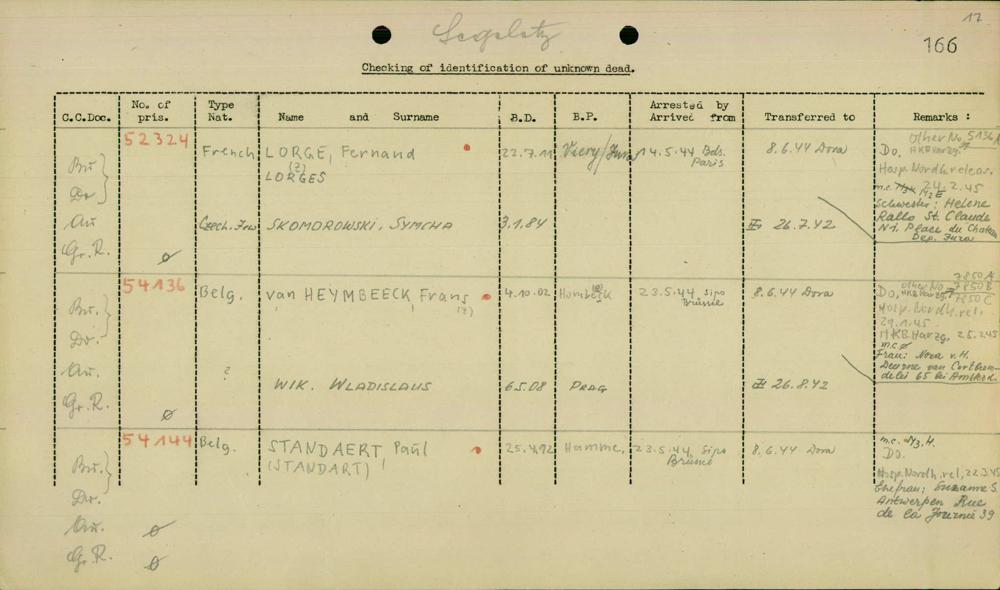 17
Segeletz
166
Checking of identification of unknown dead.
C.C.Doc. No. of pris. Type Nat. Name and Surname B.D. B.P. Arrested by Arrived from Transferred to Remarks :
52324
Bu
Do
Au
Gr.R. ø
French LORGE, Fernand 22.7.11 14.5.44 Bds. Paris 8.6.44 Dora
(?)
LORGES
Other No.
Do, HKB Harzg.
Hosp. Nordh. releas.
24.2.45
Schwester: Helene
Rallo St. Claude
N1. Place du Chateau
Dep. Jura
Czech. Jew SKOMOROWSKI, SYMCHA 3.1.84 III 26.7.42
54136
Bu.
Do.
Au.
Gr.R. ø
Belg. van HEYMBEECK Frans 4.10.02 Hombeek 23.5.44 Sipo Brüssel 8.6.44 Dora
(?)
7850 A
Other No 7850 B
Do, HKB Harzg. 7850 C
Hosp. Nordh. rel.
29.1.45
HKB Harzg. 25.2.45
m.c. ø
Frau: Nora v. H.
Deurne van
65 bei
? WIK. WLADISLAUS 6.5.08 PRAG III 26.8.42
54144
Bu.
Do.
Au. ø
Gr.R. ø
Belg. STANDAERT, Paul 25.4.92 Hamme, 23.5.44 Sipo Brüssel 8.6.44 Dora
(STANDART)
m.c. H.
Do.
Hosp. Nordh. rel, 22.3.45
Ehefrau: Suzanne S.
Antwerpen Rue
de la Journie 39